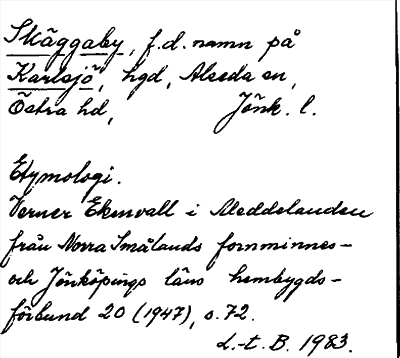 Skäggaby, f.d. namn på
Karlsjö, hgd, Alseda sn,
Östra hd, Jönk. l.
Etymologi.
Verner Ekenvall i Meddelanden
från Norra Smålands fornminnes-
och Jönköpings läns hembygds-
förbund 20 (1947), s. 72.
L.-t. B. 1983.